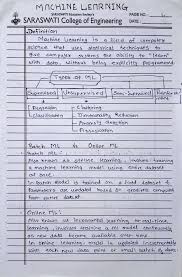 MACHINE LEARNING
SARASWATI College of Engineering
PAGE NO.
DATE
Definition
Machine Learning is a kind of computer
science that uses statistical techniques to
give computer systems the ability to "learn"
with data, without being explicitly programmed.
Types of ML
Supervised Unsupervised Semi-Supervised
Regression
Classification
Clustering
Dimensionality Reduction
Anomaly Detection
Association
Batch ML vs Online ML
Batch ML
Also known as offline learning, involves training
a machine learning model using entire dataset
at once.
In Batch model is trained on a fixed dataset &
parameters are updated based on gradients computed
from entire dataset
Online ML
Also known as incremental learning or real-time
learning, involves training a ML model continuously
as new data become available over time.
In online learning model is updated incrementally
with each new data point or small batch of data